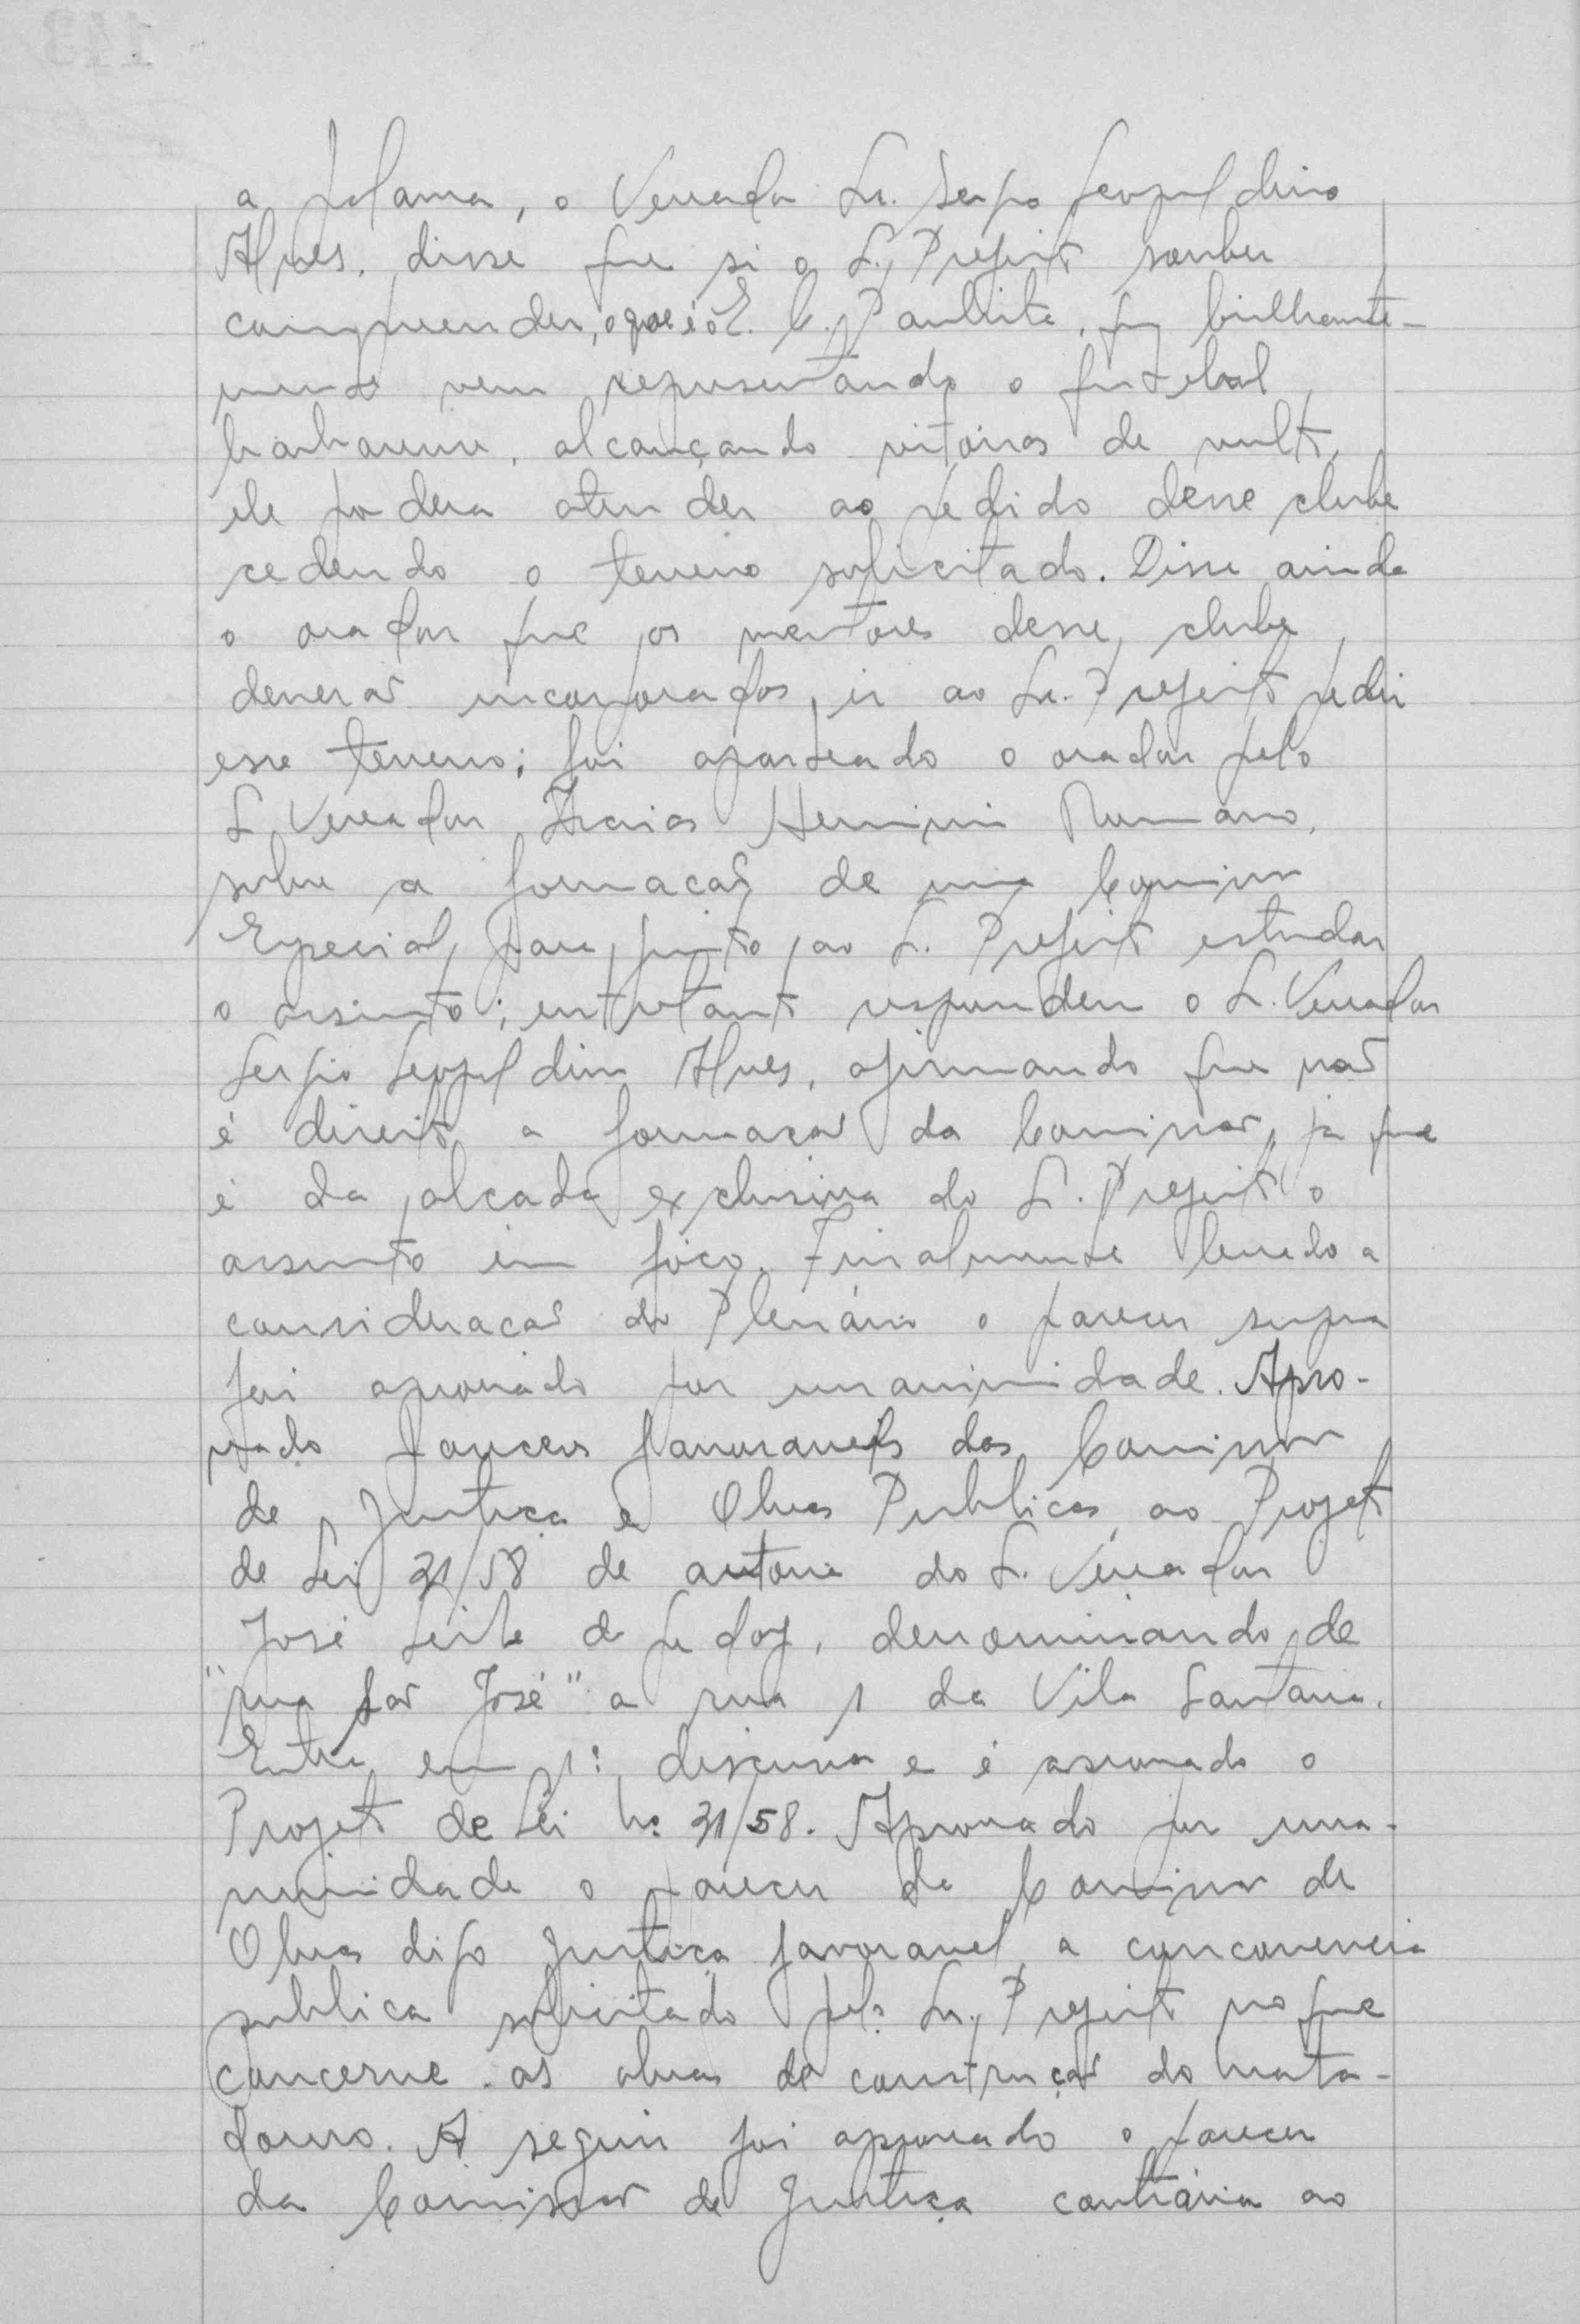 a palavra, o Vereador Sr. Sergio Leopoldino
Alves, disse que si o Sr. Prefeito souber
compreender, o que é o E. C. Paulista, que brilhante-
mente vem representando o futebol
, alcançando vitórias de vulto,
ele poderá atender ao pedido desse clube
cedendo o terreno solicitado. Disse ainda
o orador que os mentores desse clube
deverão incorporados, ir ao Sr. Prefeito pedir
esse terreno; foi aparteado o orador pelo
Sr Vereador Isaias Herminio Romano,
sobre a formação de uma Comissão
Especial, para junto ao Sr. Prefeito estudar
o assunto; entretanto respondeu o Sr. Vereador
Sergio Leopoldino Alves, afirmando que não
é direito a formação da Comissão, já que
é da alçada exclusiva do Sr. Prefeito o
assunto em fóco. Finalmente levado a
consideração do Plenário o parecer supra
foi aprovado por unanimidade. Apro-
vado pareceres favoraveis das Comissão
de Justiça e Obras Publicas, ao Projeto
de Lei 31/58 de autoria do Sr. Vereador
José Leite de Godoy, denominando de
"rua São José" a rua 1 da Vila Santana.
Entra em 1ª discussão e é aprovado o
Projeto de Lei nº 31/58. Aprovado por una-
nimidade o parecer da Comissão de
Obras digo Justiça favoravel a concorrencia
publica solicitado pelo Sr. Prefeito no que
concerne as obras de construção do mata-
douro. A seguir foi aprovado o parecer
da Comissão de Justiça contrária ao